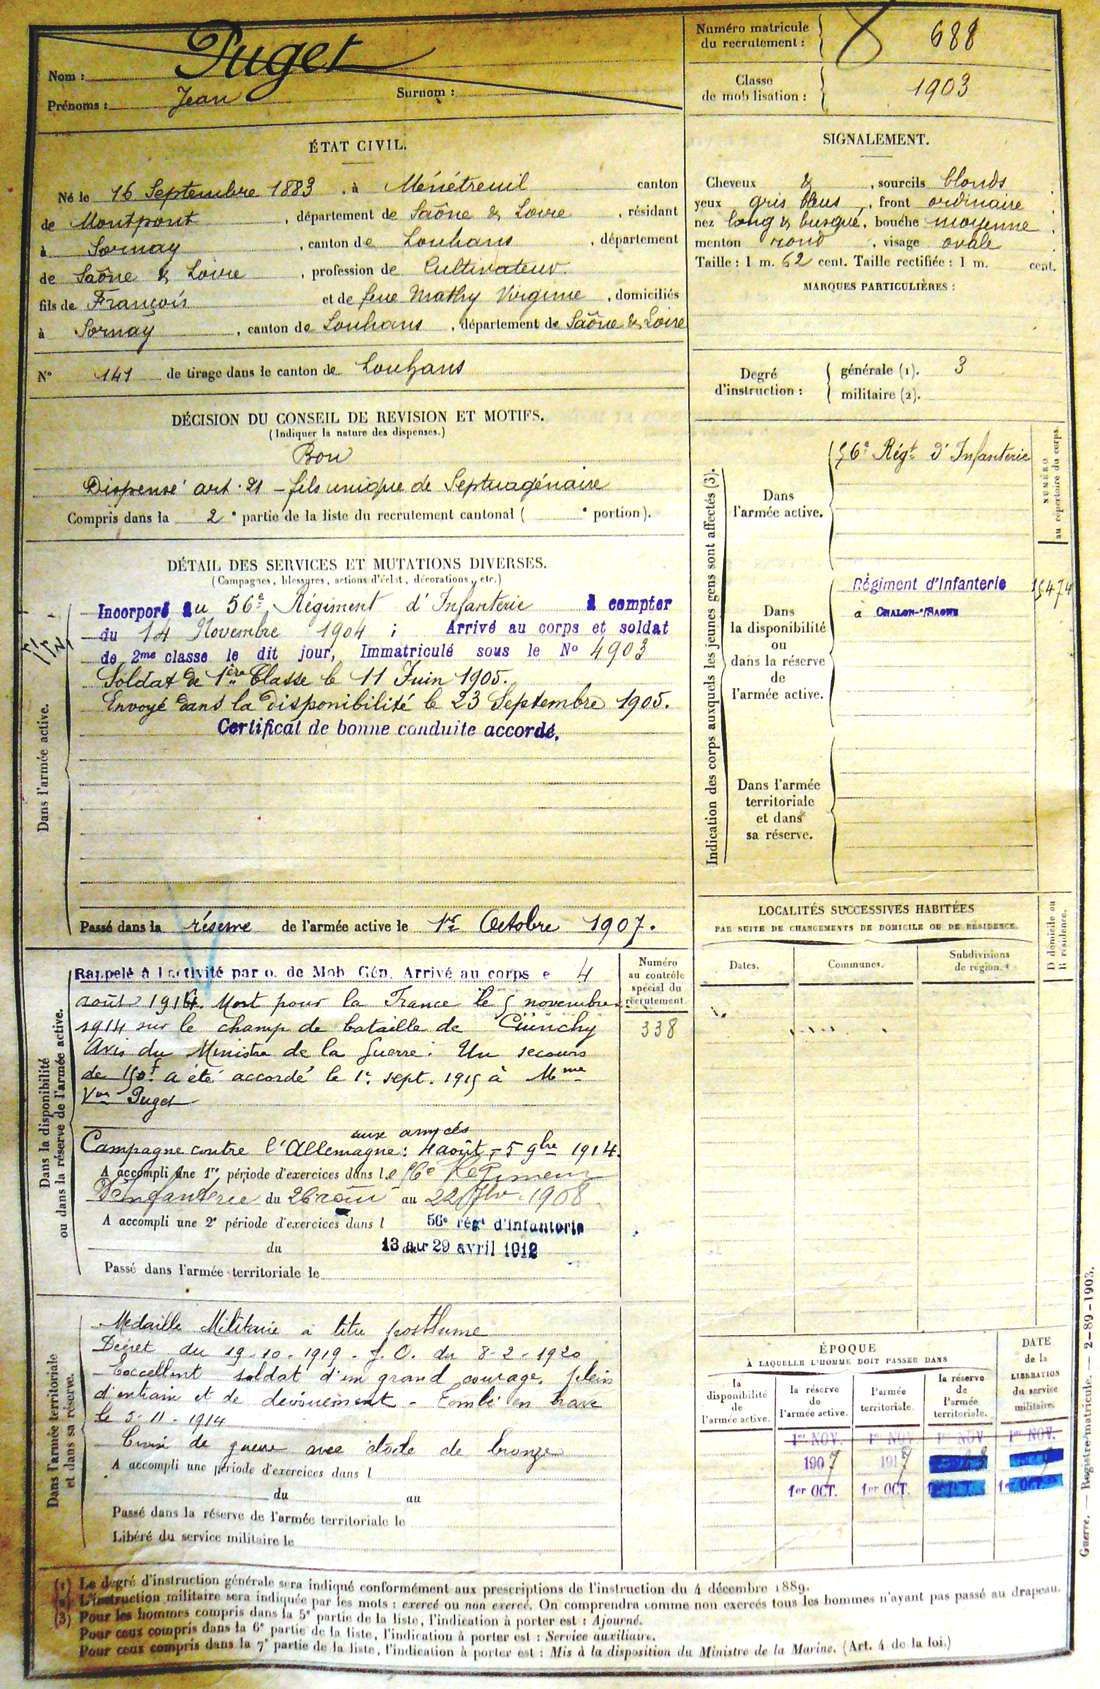 Nom : Puget
Prénoms : Jean Surnom :
Numéro matricule
du recrutement : 688
Classe
de mobilisation : 1903
ÉTAT CIVIL.
Né le 16 Septembre 1883 . à Ménétreuil canton
de Montpont , département de Saône & Loire , résidant
à Sornay , canton de Louhans , département
de Saône & Loire , profession de Cultivateur
fils de François et de feue Mathy Virginie , domiciliés
à Sornay , canton de Louhans , département de Saône & Loire
N° 141 de tirage dans le canton de Louhans
SIGNALEMENT.
Cheveux & , sourcils blonds
yeux gris bleus , front ordinaire
nez long & busqué , bouche moyenne
menton rond , visage ovale
Taille : 1 m. 62 cent. Taille rectifiée : 1 m. cent.
MARQUES PARTICULIÈRES :
Degré
d'instruction :
générale (1). 3
militaire (2).
DÉCISION DU CONSEIL DE REVISION ET MOTIFS.
(Indiquer la nature des dispenses.)
Bon
Dispensé art. 21 - fils unique de Septuagénaire
Compris dans la 2e partie de la liste du recrutement cantonal ( e portion).
DÉTAIL DES SERVICES ET MUTATIONS DIVERSES.
(Campagnes, blessures, actions d'éclat, décorations, etc.)
Dans l'armée active.
Incorporé au 56e Régiment d'Infanterie à compter
du 14 Novembre 1904 ; Arrivé au corps et soldat
de 2me classe le dit jour, Immatriculé sous le No 4903
Soldat de 1ère Classe le 11 Juin 1905.
Envoyé dans la disponibilité le 23 Septembre 1905.
Certificat de bonne conduite accordé.
Passé dans la réserve de l'armée active le 1er Octobre 1907.
Indication des corps auxquels les jeunes gens sont affectés (3).
NUMÉRO
au répertoire du corps.
Dans
l'armée active.
56e Régt d'Infanterie
Dans
la disponibilité
ou
dans la réserve
de
l'armée active.
Régiment d'Infanterie
à CHALON-s/SAONE
16474
Dans l'armée
territoriale
et dans
sa réserve.
LOCALITÉS SUCCESSIVES HABITÉES
PAR SUITE DE CHANGEMENTS DE DOMICILE OU DE RÉSIDENCE.
Dates.
Communes.
Subdivisions
de région.
D domicile ou
R résidence.
Dans la disponibilité
ou dans la réserve de l'armée active.
Numéro
au contrôle
spécial du
recrutement.
338
Rappelé à l'activité par o. de Mob. Gén. Arrivé au corps le 4
août 1914. Mort pour la France le 5 novembre
1914 sur le champ de bataille de
Avis du Ministre de la Guerre. Un secours
de 150f a été accordé le 1er sept. 1915 à Mme
Vve Puget
aux armées
Campagne contre l'Allemagne : 4 août - 5 9bre 1914.
A accompli une 1re période d'exercices dans le 56e Régiment
D'Infanterie du 26 août au 22 7bre 1908
A accompli une 2e période d'exercices dans l 56e régt d'Infanterie
du 13 au 29 avril 1912
Passé dans l'armée territoriale le
Dans l'armée territoriale
et dans sa réserve.
Médaille Militaire à titre posthume
Décret du 19-10-1919 - J.O. du 8-2-1920
Excellent soldat d'un grand courage, plein
d'entrain et de dévouement - Tombé en brave
le 5-11-1914
Croix de guerre avec étoile de bronze
A accompli une période d'exercices dans l
du au
Passé dans la réserve de l'armée territoriale le
Libéré du service militaire le
ÉPOQUE
À LAQUELLE L'HOMME DOIT PASSER DANS
DATE
de la
LIBÉRATION
du service
militaire.
la
disponibilité
de
l'armée active.
la réserve
de
l'armée active.
l'armée
territoriale.
la réserve
de
l'armée
territoriale.
1er NOV. 1er NOV. 1er NOV. 1er NOV.
1907 1917
1er OCT. 1er OCT.
Guerre. — Registre matricule. — 2-89-1903.
(1) Le degré d'instruction générale sera indiqué conformément aux prescriptions de l'instruction du 4 décembre 1889.
(2) L'instruction militaire sera indiquée par les mots : exercé ou non exercé. On comprendra comme non exercés tous les hommes n'ayant pas passé au drapeau.
(3) Pour les hommes compris dans la 5e partie de la liste, l'indication à porter est : Ajourné.
Pour ceux compris dans la 6e partie de la liste, l'indication à porter est : Service auxiliaire.
Pour ceux compris dans la 7e partie de la liste, l'indication à porter est : Mis à la disposition du Ministre de la Marine. (Art. 4 de la loi.)